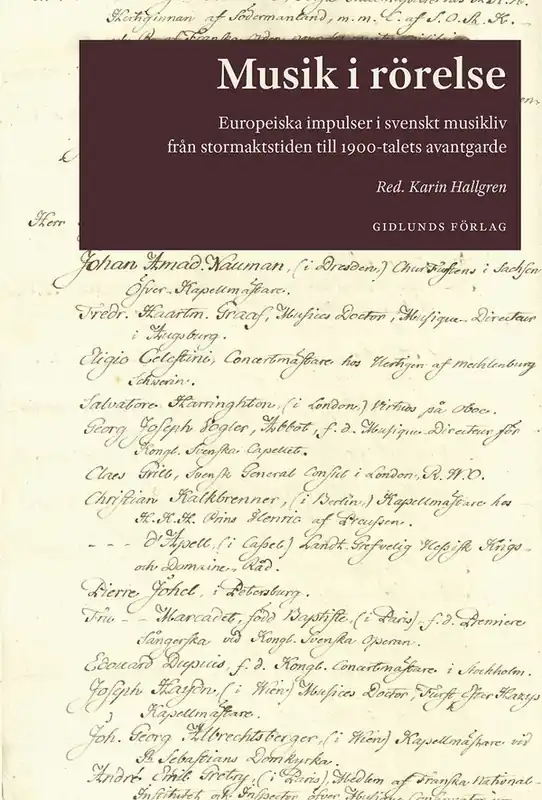 Hertiginnan af Södermanland, m. m. L. af S. O. St. K.
Musik i rörelse
Europeiska impulser i svenskt musikliv
från stormaktstiden till 1900-talets avantgarde
Red. Karin Hallgren
GIDLUNDS FÖRLAG
Herr
Johan Amad. Nauman, (i Dresden,) Churfurstens i Sachsen
Öfver-Kapellmästare.
Fredr. Haartm. Graaf, Musices Doctor, Musique-Directeur
i Augsburg.
Eligio Celestini, Concertmästare hos Hertigen af Mecklenburg
Schwerin.
Salvatore Harringhton, (i London,) Virtuos på Oboe.
Georg Joseph Vogler, Abbot, f. d. Musique Directeur för
Kongl. Svenska Capellet.
Claes Grill, Svensk General Consul i London, R. W. O.
Christian Kalkbrenner, (i Berlin,) Kapellmästare hos
H. K. H. Prins Henric af Preussen.
- - - d'Apell, (i Cassel) Landt-Grefvelig Hessisk Krigs-
och Domaine-Råd.
Pierre Johel, i Petersburg.
Fru - - Marcadet, född Baptiste, (i Paris) f. d. Premiere
Sångerska vid Kongl. Svenska Operan.
Edouard Dupuis, f. d. Kongl. Concertmästare i Stockholm.
Joseph Haydn, (i Wien) Musices Doctor, Furst Esterhazys
Kapellmästare.
Joh. Georg Albrechtsberger, (i Wien) Kapellmästare vid
St Sebastians Domkyrka.
André Emil Gretry, (i Paris), Medlem af Franska National-
Institutet, och Inspector öfver